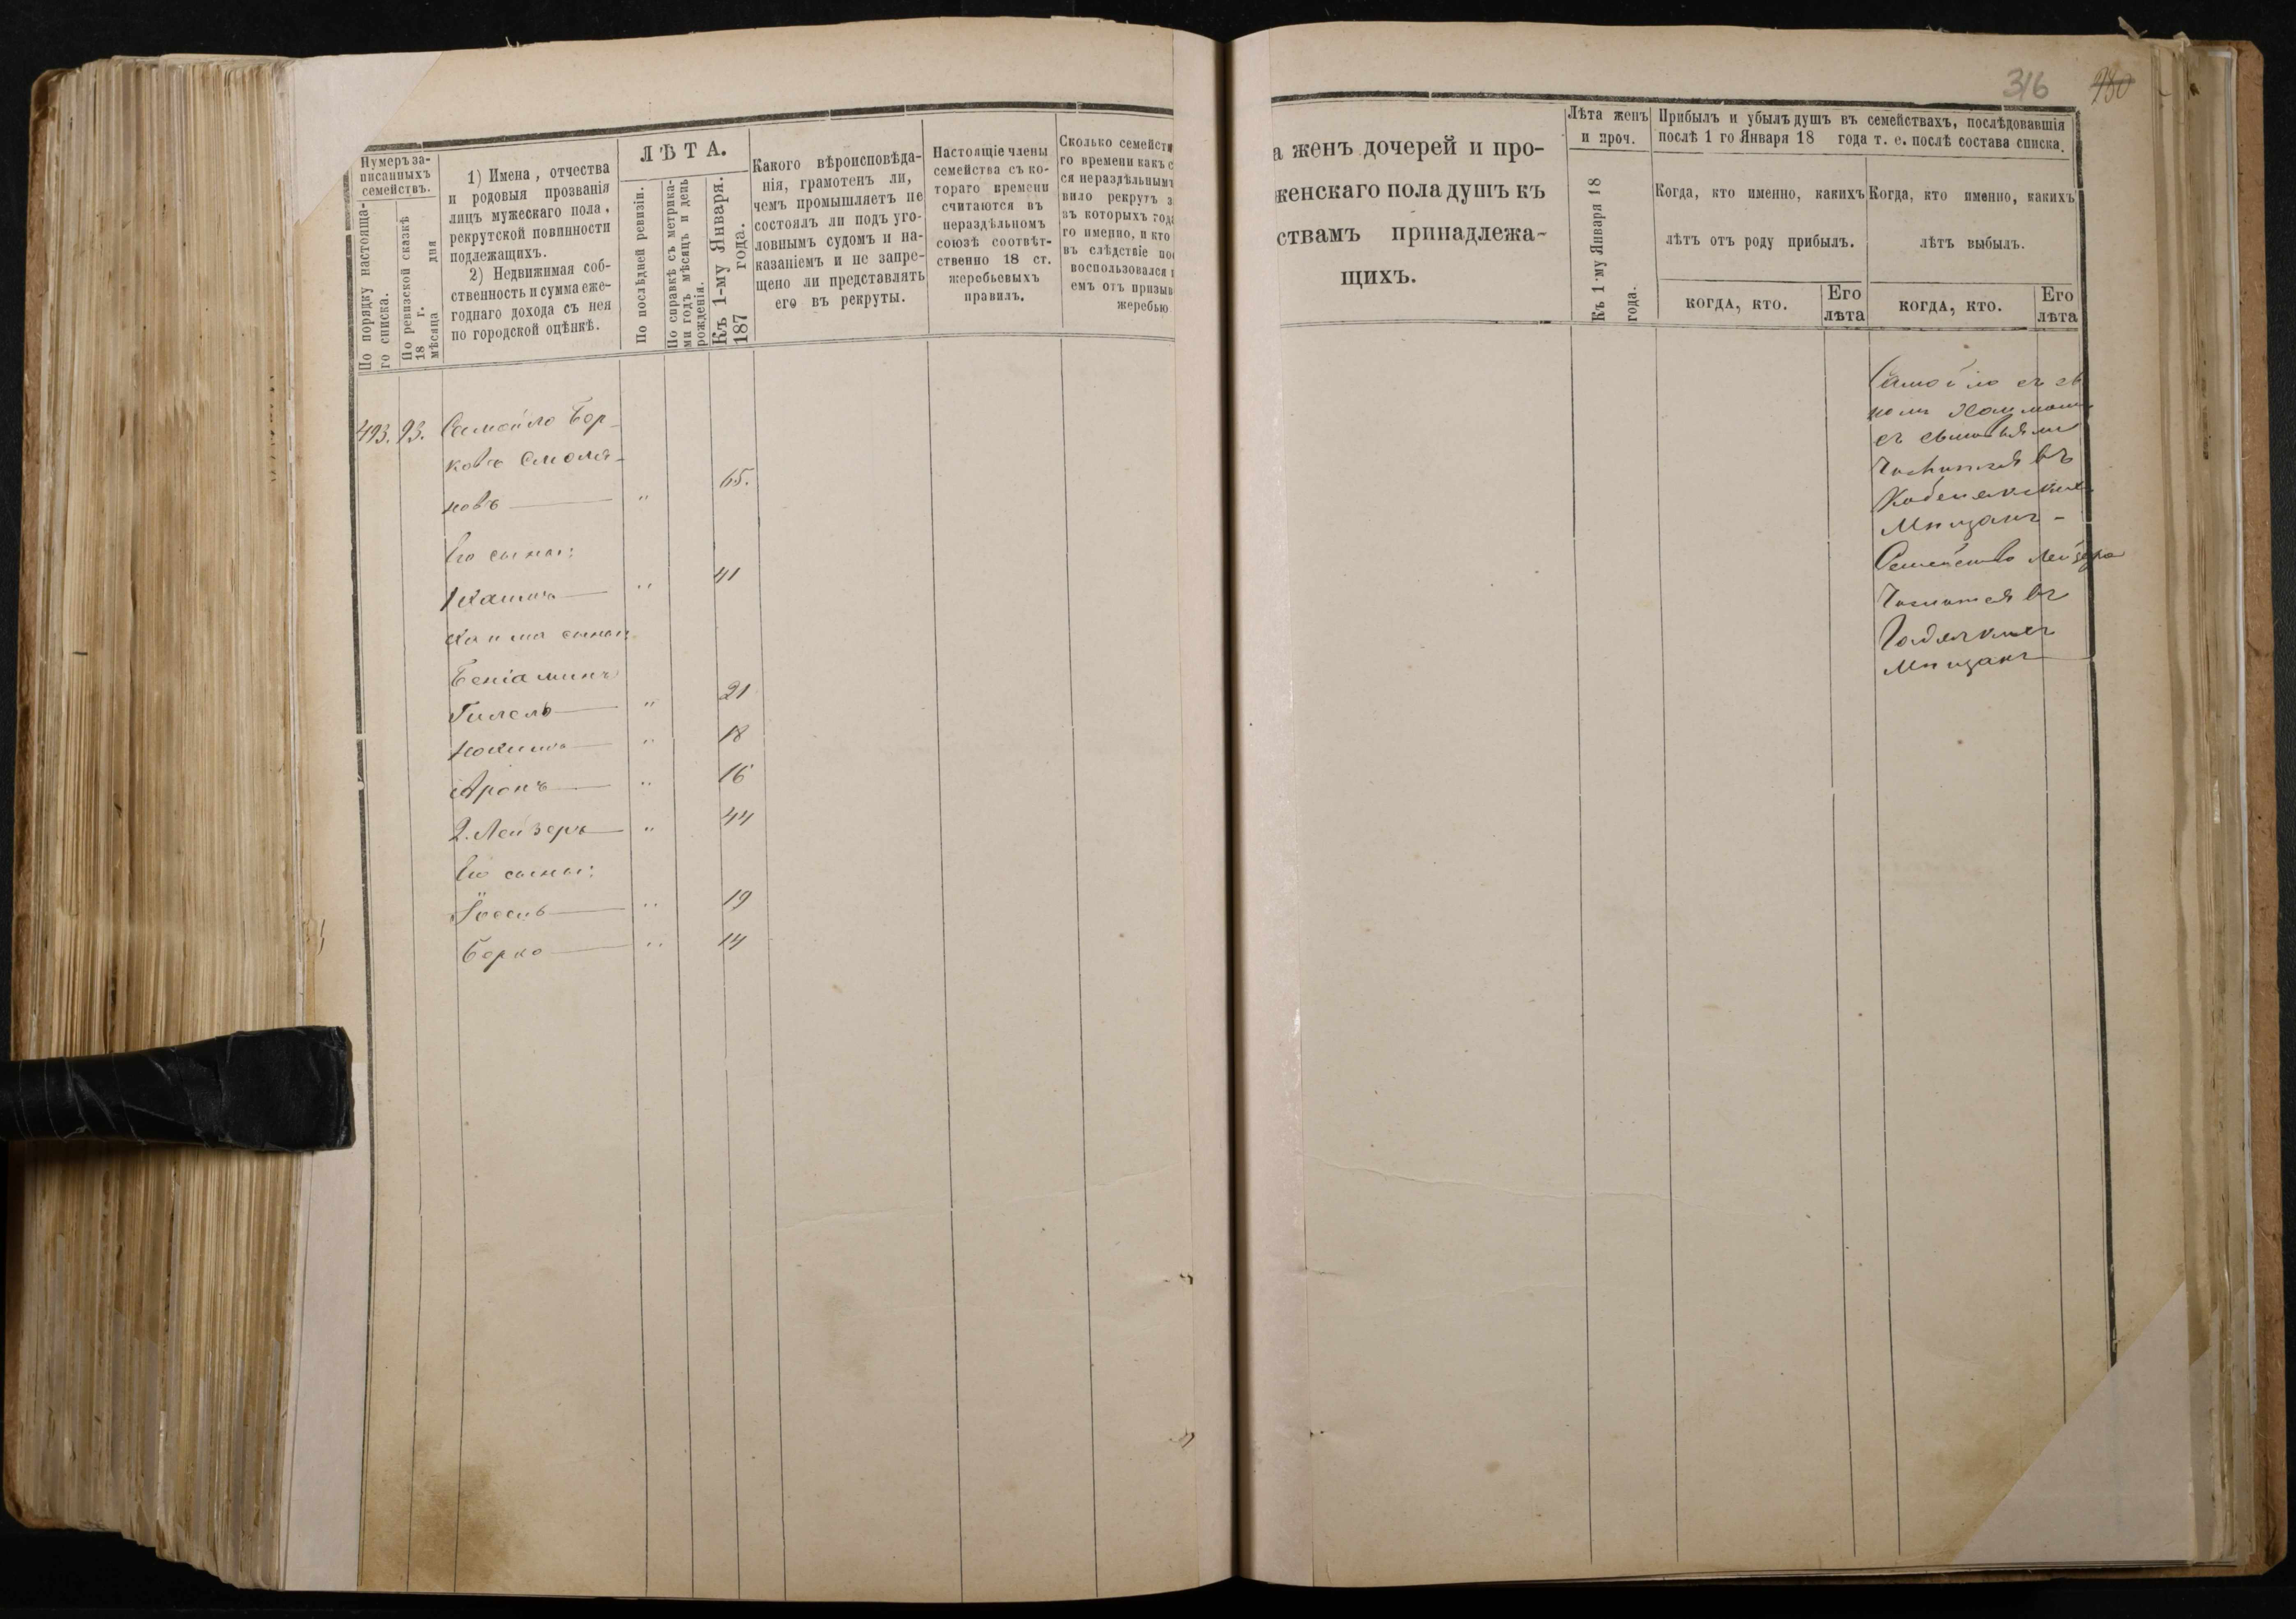 Нумеръ за-
писанныхъ
семействъ.
По порядку настояща-
го списка.
По ревизской сказкѣ
18 г.
мѣсяца дня
1) Имена, отчества
и родовыя прозванія
лицъ мужескаго пола,
рекрутской повинности
подлежащихъ.
2) Недвижимая соб-
ственность и сумма еже-
годнаго дохода съ нея
по городской оцѣнкѣ.
ЛѢТА.
По послѣдней ревизіи.
По справкѣ съ метрика-
ми годъ мѣсяцъ и день
рожденія.
Къ 1-му Января.
187 года.
Какого вѣроисповѣда-
нія, грамотенъ ли,
чѣмъ промышляетъ не
состоялъ ли подъ уго-
ловнымъ судомъ и на-
казаніемъ и не запре-
щено ли представлять
его въ рекруты.
Настоящіе члены
семейства съ ко-
тораго времени
считаются въ
нераздѣльномъ
союзѣ соотвѣт-
ственно 18 ст.
жеребьевыхъ
правилъ.
Сколько семейств
го времени какъ с
ся нераздѣльнымъ
вило рекрутъ з
въ которыхъ года
го именно, и кто
въ слѣдствіе по
воспользовался
емъ отъ призыв
жеребью
493. 93. Самойло Бер-
ковъ Смоля-
новъ " 65.
Его сыны:
1 Хаимъ " 41
Хаима сыны:
Беніаминъ
Гилель " 21
Нохимъ " 18
Аронъ " 16
2. Лейзеръ " 44
Его сыны:
Іосель " 19
Берко " 14
316 480
а женъ дочерей и про-
женскаго пола душъ къ
ствамъ принадлежа-
щихъ.
Лѣта женъ
и проч.
Къ 1-му Января 18
года.
Прибылъ и убылъ душъ въ семействахъ, послѣдовавшія
послѣ 1 го Января 18 года т. е. послѣ состава списка.
Когда, кто именно, какихъ
лѣтъ отъ роду прибылъ.
когда, кто.
Его
лѣта
Когда, кто именно, какихъ
лѣтъ выбылъ.
когда, кто.
Его
лѣта
Самойло съ сы
номъ Хаимомъ
съ сыновьями
числится въ
Кобелякскихъ
Мѣщанъ -
Семейство Лейзера
Числится въ
Гадячкихъ
Мѣщанъ